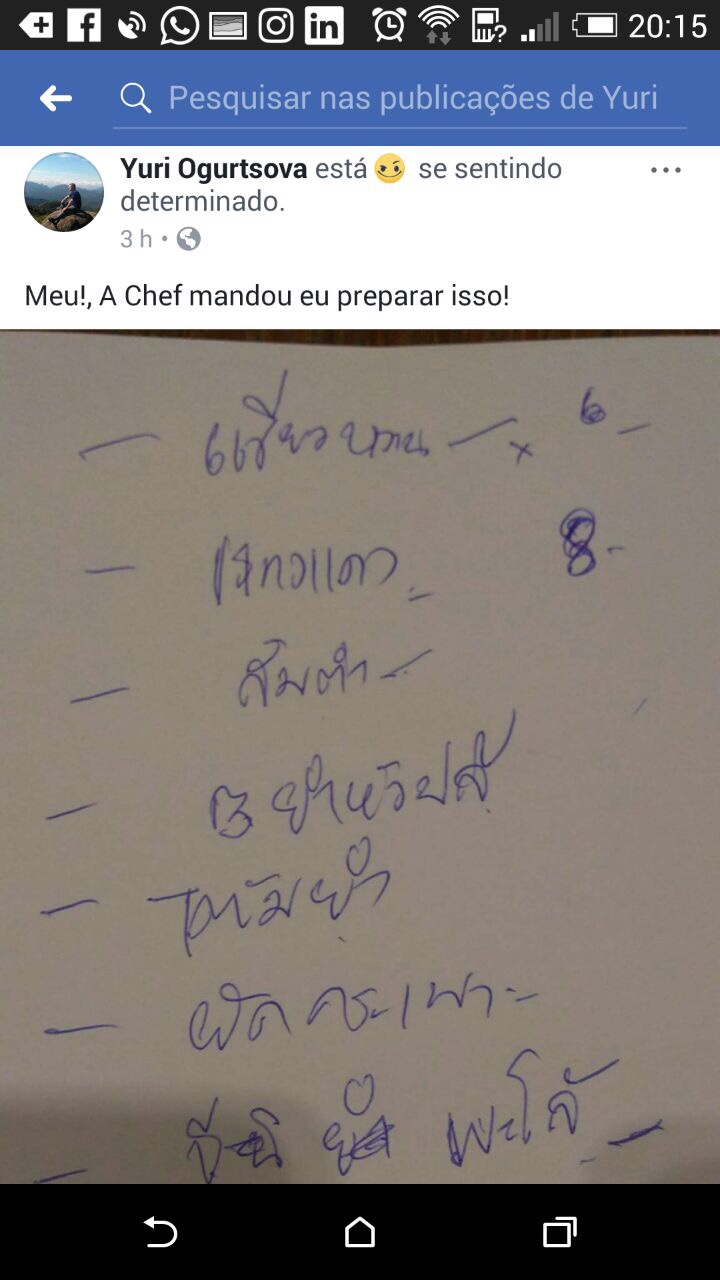 20:15
Pesquisar nas publicações de Yuri
Yuri Ogurtsova está se sentindo
determinado.
3 h
Meu!, A Chef mandou eu preparar isso!
— เขียวหวาน — x 6 —
— 8-
— ส้มตำ -
— ยำหัวปลี
— ต้มยำ
— ผัดกระเพาะ -
— พะโล้ -